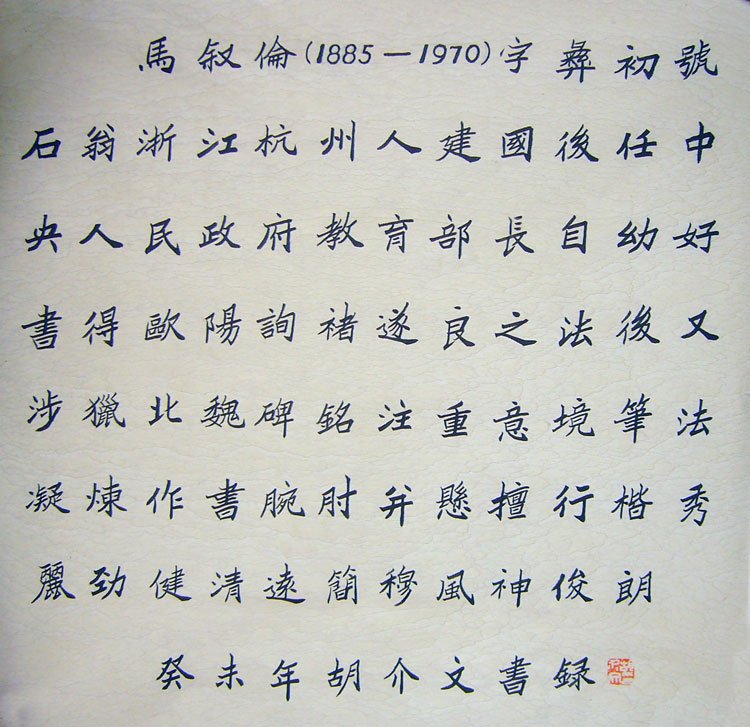 馬叙倫(1885—1970)字彝初號
石翁浙江杭州人建國後任中
央人民政府教育部長自幼好
書得歐陽詢褚遂良之法後又
涉獵北魏碑銘注重意境筆法
凝煉作書腕肘并懸擅行楷秀
麗勁健清遠簡穆風神俊朗
癸未年胡介文書録